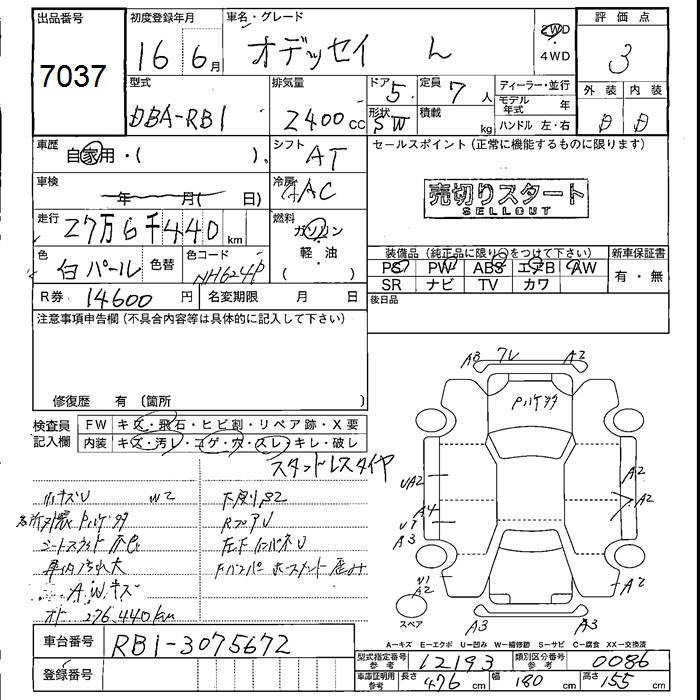 出品番号
7037
初度登録年月
16 6月
車名・グレード
オデッセイ L
2WD
・
4WD
評価点
3
外装 内装
型式
DBA-RB1
排気量
2400cc
ドア 5
形状 SW
定員 7人
積載 kg
ディーラー・並行
モデル年式 年
ハンドル 左・右
車歴
自家用・( )
シフト
AT
セールスポイント (正常に機能するものに限ります)
車検
年 月( 日)
冷房
AAC
売切りスタート
SELLOUT
走行
27万6千440km
燃料
ガソリン
・
軽・油
色
白パール
色替
色コード
NH624P
装備品 (純正品に限り○をつけて下さい)
PS PW ABS エアB AW
SR ナビ TV カワ
新車保証書
有・無
R券 14600円
名変期限 月 日
後日品
注意事項申告欄(不具合内容等は具体的に記入して下さい)
修復歴 有 (箇所
検査員記入欄
FW キズ・飛石・ヒビ割・リペア跡・X要
内装 キズ・汚レ・コゲ・穴・スレ・キレ・破レ
スタッドレスタイヤ
車内汚れ大
A.Wキズ
276,440km
A3 フレ A2
UA2
A4
A3
A2
A2
A2
A2
スペア
A3 A3
車台番号 RB1-3075672
登録番号
A=キズ E=エクボ U=凹み W=補修跡 S=サビ C=腐食 XX=交換済
型式指定番号 参考 12193
類別区分番号 参考 0086
車庫証明用 参考 長さ 476cm 幅 180cm 高さ 155cm